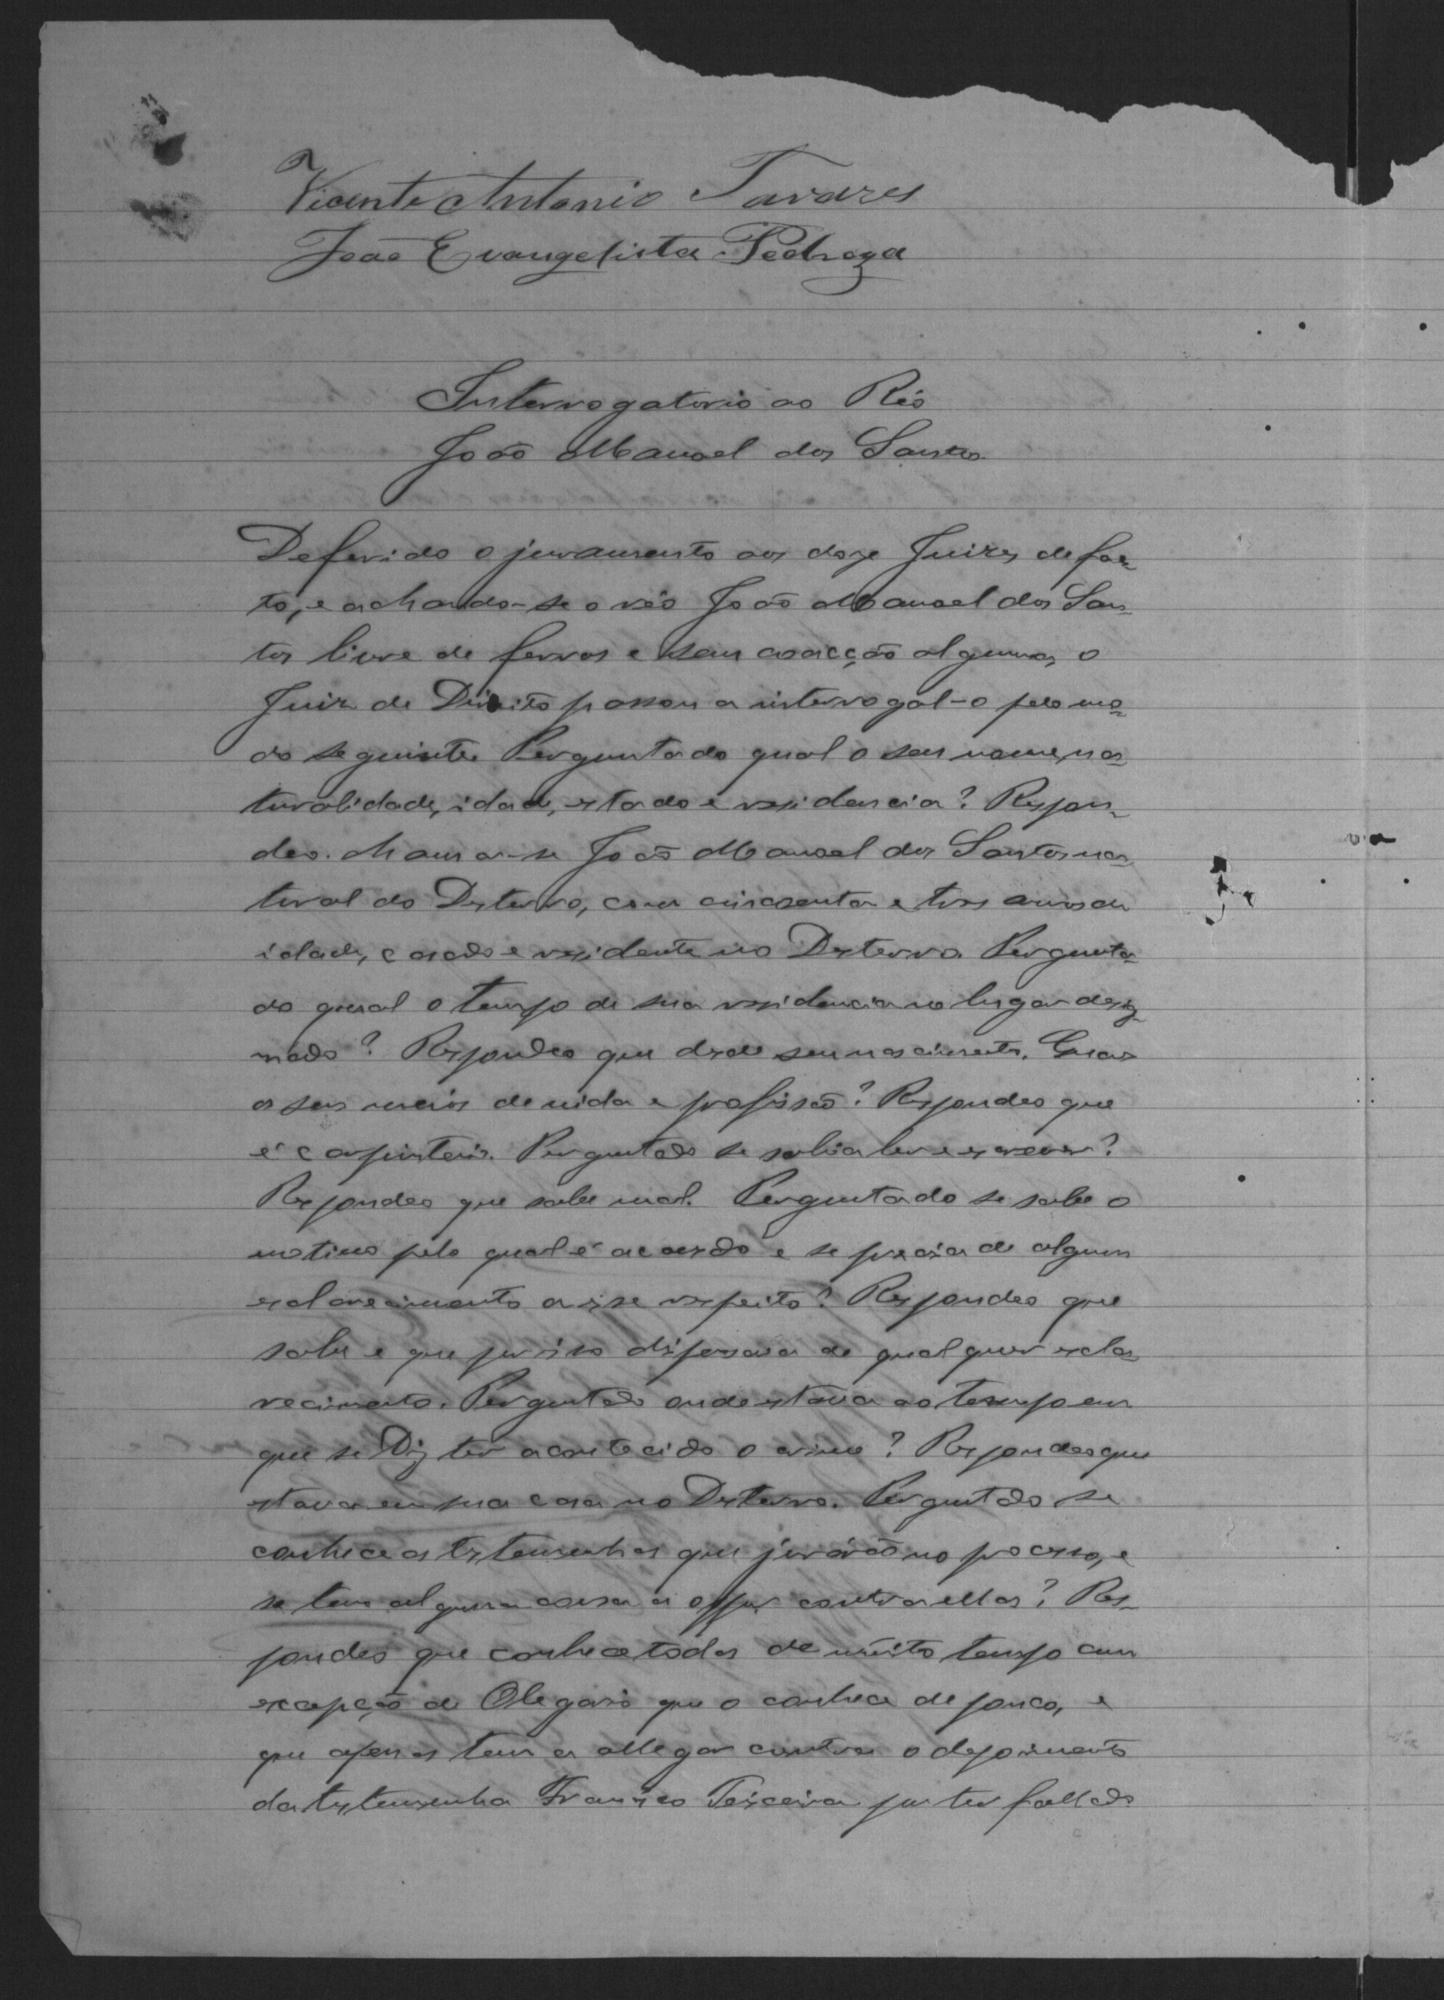 Vicente Antonio Tavares
João Evangelista Pedroza
Interrogatorio ao Réo
João Manoel dos Santos
Deferido o juramento aos doze Juizes de fac-
to, e achando-se o réo João Manoel dos San-
tos livre de ferros e sem coacção alguma, o
Juiz de Direito passou a interrogal-o pelo mo-
do seguinte. Perguntado qual o seu nome, na-
turalidade, idade, estado e residencia? Respon-
deo. chamar-se João Manoel dos Santos na-
tural do Desterro, com cincoenta e tres annos de
idade, casado e residente no Desterro. Pergunta-
do qual o tempo de sua residencia no lugar desig-
nado? Respondeo que desde seu nascimento. Quaes
os seus meios de vida e profissão? Respondeo que
é carpinteiro. Perguntado se sabia ler e escrever?
Respondeo que sabe mal. Perguntado se sabe o
motivo pelo qual é accusado e se precisa de algum
esclarecimento a esse respeito? Respondeo que
sabe e que por isso dispensava de qualquer escla-
recimento. Perguntado onde estava ao tempo em
que se Diz ter acontecido o crime? Respondeo que
estava em sua casa no Desterro. Perguntado se
conhece as testemunhas que jurárão no processo, e
se tem alguma cousa a oppor contra ellas? Res-
pondeo que conhece todas de muito tempo com
excepção de Olegario que o conhece de pouco, e
que apenas tem a allegar contra o depoimento
da testemunha Francisco Teixeira por ter fallado